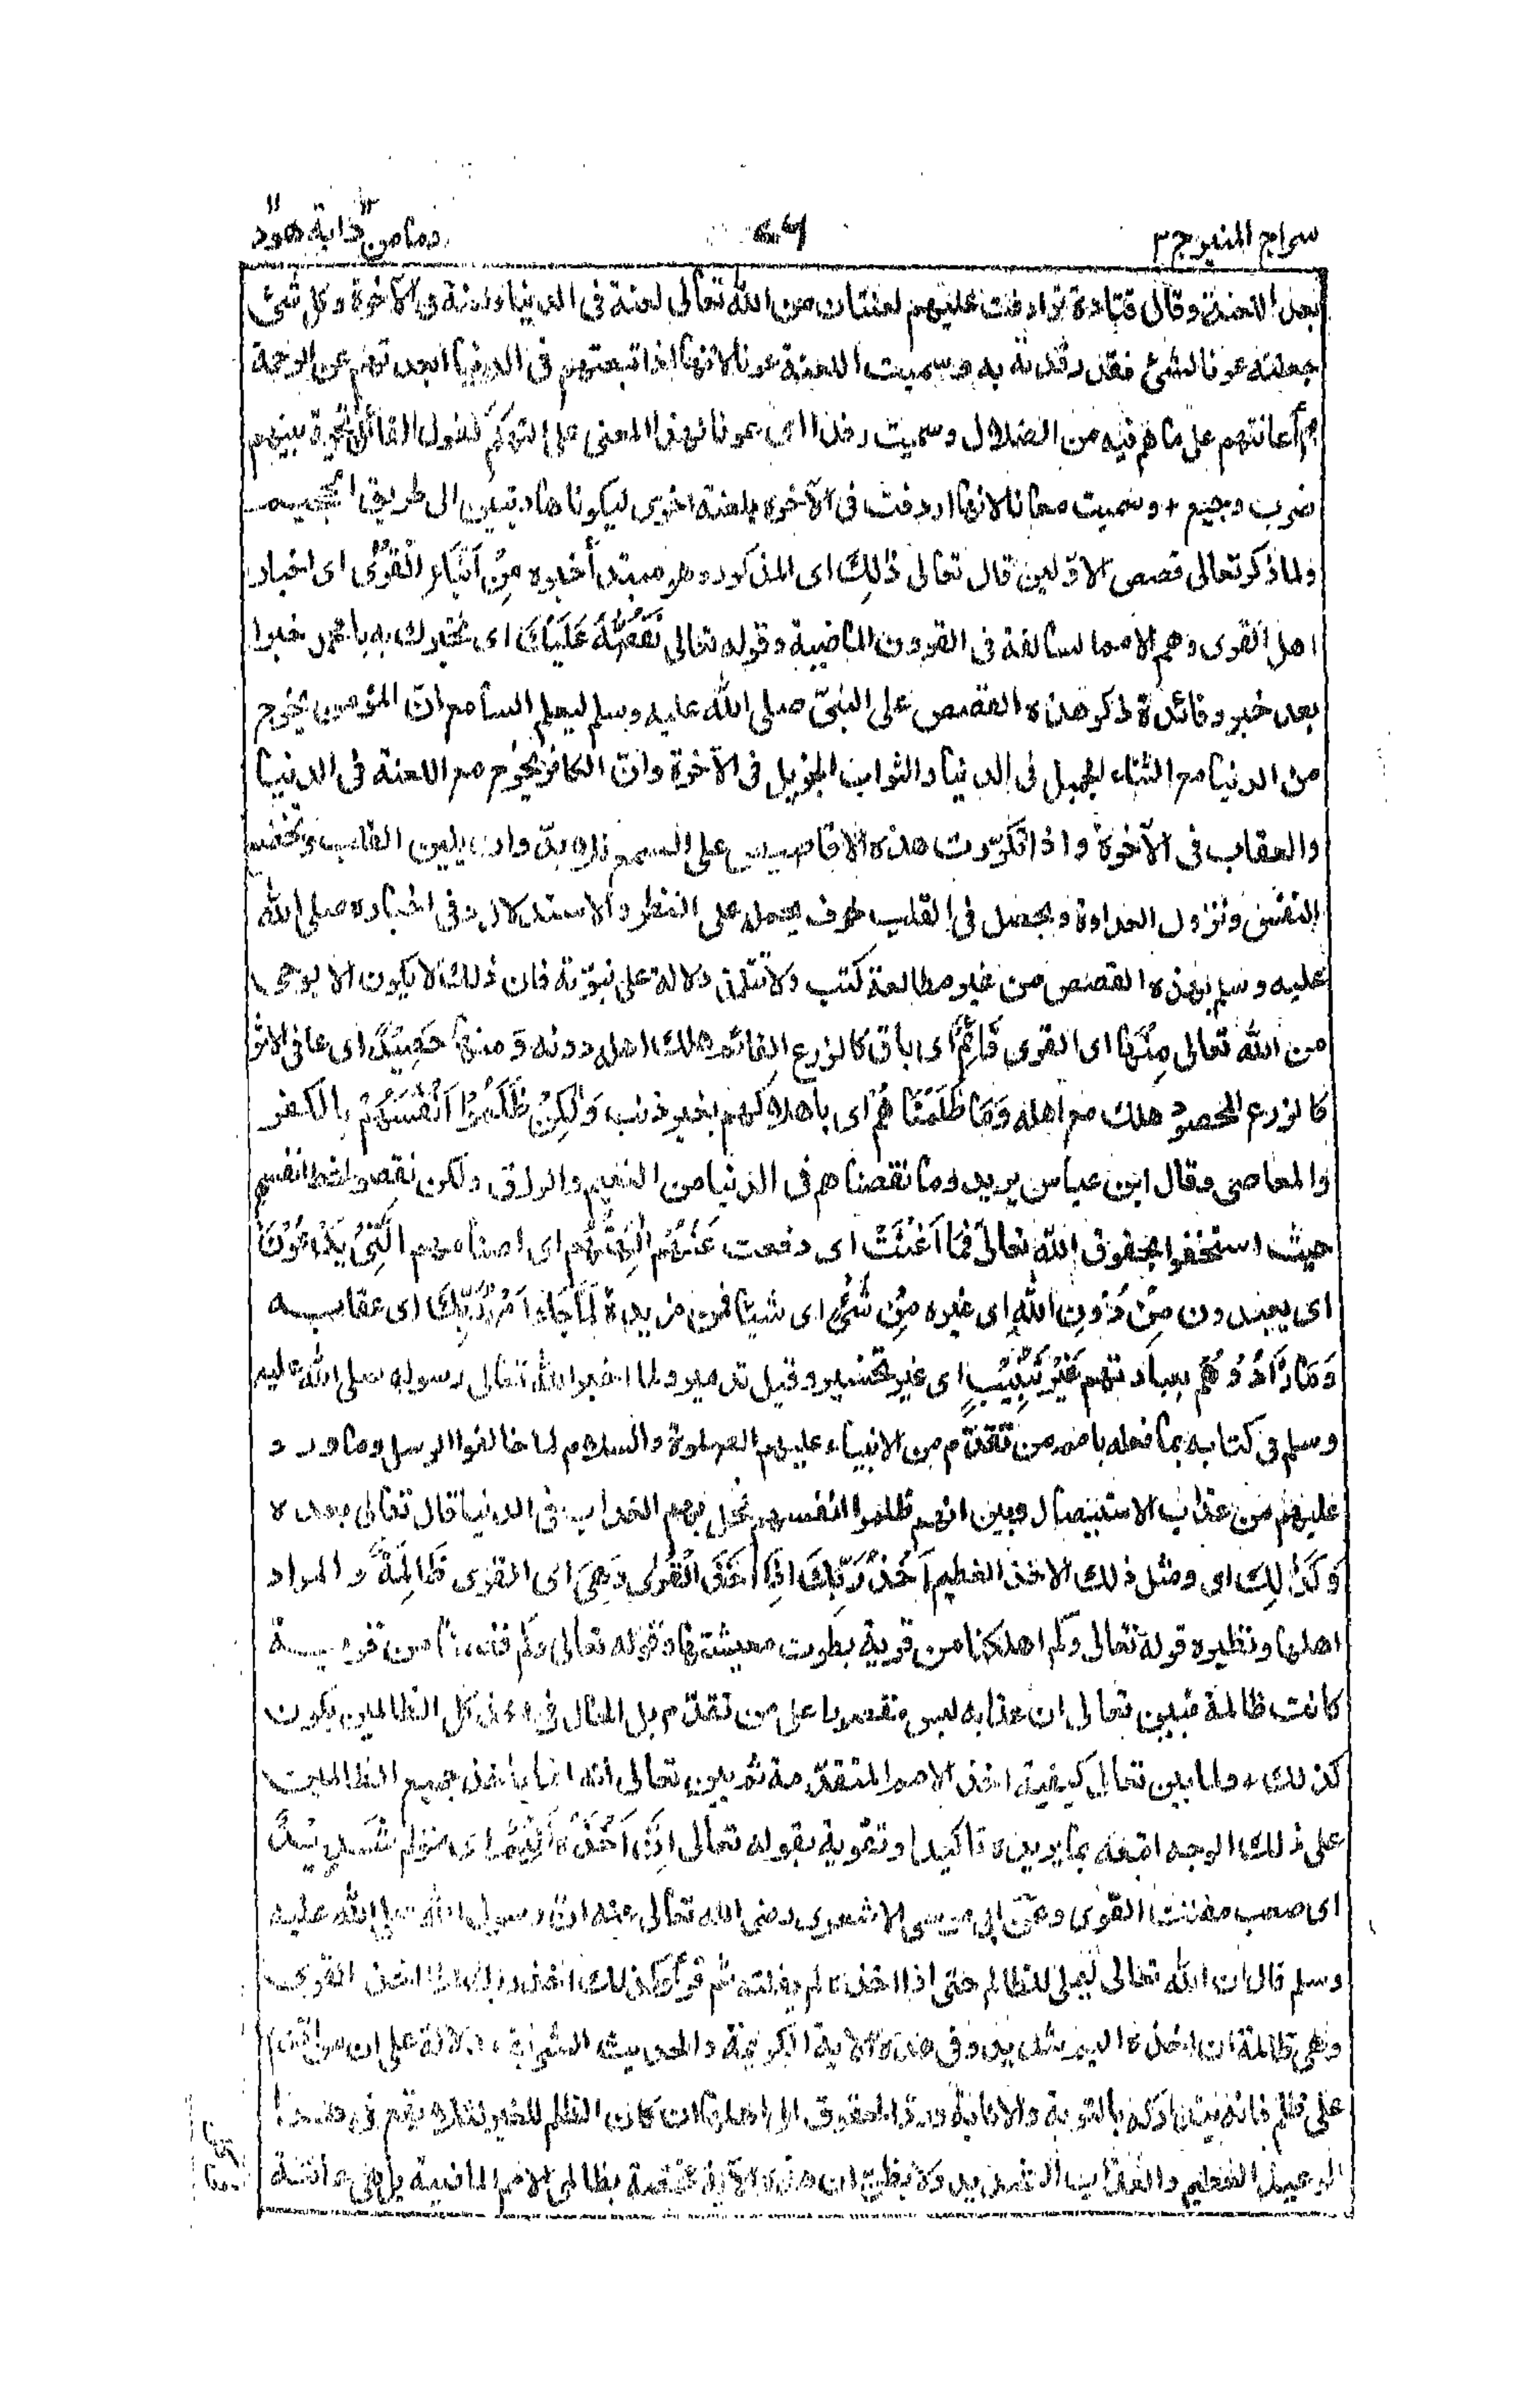 سراج المنير ج٣
وما من دابة ١٢ هود ١١
بعد اللعنة وقال قتادة ترادفت عليهم لعنتان من الله تعالى لعنة فى الدنيا ولعنة فى الآخرة وكل شئ
جعلته عونا لشئ فقد رفدته به وسميت اللعنة عونا لانها اذا تبعتهم فى الدنيا ابعدتهم عن الرحمة
وأعانتهم على ما هم فيه من الضلال وسميت رفدا اى عونا لهذا المعنى على التهكم كقول القائل تحية بينهم
ضرب وجيع + وسميت معانا لانها اردفت فى الآخرة بلعنة اخرى ليكونا هاديتين الى طريق الجحيم
ولما ذكر تعالى قصص الاولين قال تعالى ذٰلِكَ اى المذكور وهو مبتدأ خبره مِنْ اَنْۢبَآءِ الْقُرٰى اى اخبار
اهل القرى وهم الامم السالفة فى القرون الماضية وقوله تعالى نَقُصُّهٗ عَلَيْكَ اى نخبرك به يا محمد خبرا
بعد خبر وفائدة ذكر هذه القصص على النبىّ صلى الله عليه وسلم ليعلم السامع انّ المؤمن يخرج
من الدنيا مع الثناء الجميل فى الدنيا والثواب الجزيل فى الآخرة وانّ الكافر يخرج مع اللعنة فى الدنيا
والعقاب فى الآخرة واذا تكرّرت هذه الاقاصيص على السمع فلا بدّ وان يلين القلب وتخضع
النفس وتزول العداوة ويحصل فى القلب خوف يحمله على النظر والاستدلال وفى اخباره صلى الله
عليه وسلم بهذه القصص من غير مطالعة كتب ولا تتلمذ دلالة على نبوّته فان ذلك لا يكون الا بوحى
من الله تعالى مِنْهَا اى القرى قَآئِمٌ اى باق كالزرع القائم هلك اهله دونه وَّ منها حَصِيْدٌ اى عافى الاثر
كالزرع المحصود هلك مع اهله وَمَا ظَلَمْنٰهُمْ اى باهلاكهم بغير ذنب وَلٰكِنْ ظَلَمُوْٓا اَنْفُسَهُمْ بالكفر
والمعاصى وقال ابن عباس يريد وما نقصناهم فى الدنيا من النعيم والرزق ولكن نقصوا حظ انفسهم
حيث استخفوا بحقوق الله تعالى فَمَآ اَغْنَتْ اى دفعت عَنْهُمْ اٰلِهَتُهُمُ اى اصنامهم الَّتِىْ يَدْعُوْنَ
اى يعبدون مِنْ دُوْنِ اللهِ اى غيره مِنْ شَىْءٍ اى شيئا فمن مزيدة لَمَّا جَآءَ اَمْرُ رَبِّكَ اى عقابه
وَمَا زَادُوْهُمْ بعبادتهم غَيْرَ تَتْبِيْبٍ اى غير تخسير وقيل تدمير ولما اخبر الله تعالى رسوله صلى الله عليه
وسلم فى كتابه بما فعله بامم من تقدّم من الانبياء عليهم الصلوة والسلام لما خالفوا الرسل وما ورد
عليهم من عذاب الاستيصال وبين انهم ظلموا انفسهم فحل بهم العذاب فى الدنيا قال تعالى بعده
وَكَذٰلِكَ اى ومثل ذلك الاخذ العظيم اَخْذُ رَبِّكَ اِذَآ اَخَذَ الْقُرٰى وَهِىَ اى القرى ظَالِمَةٌ والمراد
اهلها ونظيره قوله تعالى وكم اهلكنا من قرية بطرت معيشتها وقوله تعالى وكم قصمنا من قرية
كانت ظالمة فبين تعالى ان عذابه ليس مقصورا على من تقدّم بل الحال فى اخذ كل الظالمين يكون
كذلك + ولما بين تعالى كيفية اخذ الامم المتقدّمة ثم بين تعالى انه انما ياخذ جميع الظالمين
على ذلك الوجه اتبعه بما يزيده تاكيدا وتقوية بقوله تعالى اِنَّ اَخْذَهٗٓ اَلِيْمٌ اى مؤلم شَدِيْدٌ
اى صعب مفتت القوى وعن ابى موسى الاشعرى رضى الله تعالى عنه ان رسول الله صلى الله عليه
وسلم قال ان الله تعالى ليملى للظالم حتى اذا اخذه لم يفلته ثم قرأ وكذلك اخذ ربك اذا اخذ القرى
وهى ظالمة ان اخذه اليم شديد وفى هذه الآية الكريمة والحديث الشريف دلالة على ان من اقدم
على ظلم فانه يتداركه بالتوبة والانابة وردّ الحقوق الى اهلها ان كان الظلم للغير لئلا يقع فى هذا
الوعيد العظيم والعذاب الشديد ولا يظنّ ان هذه الآية مختصة بظالمى الامم الماضية بل هى عامّة